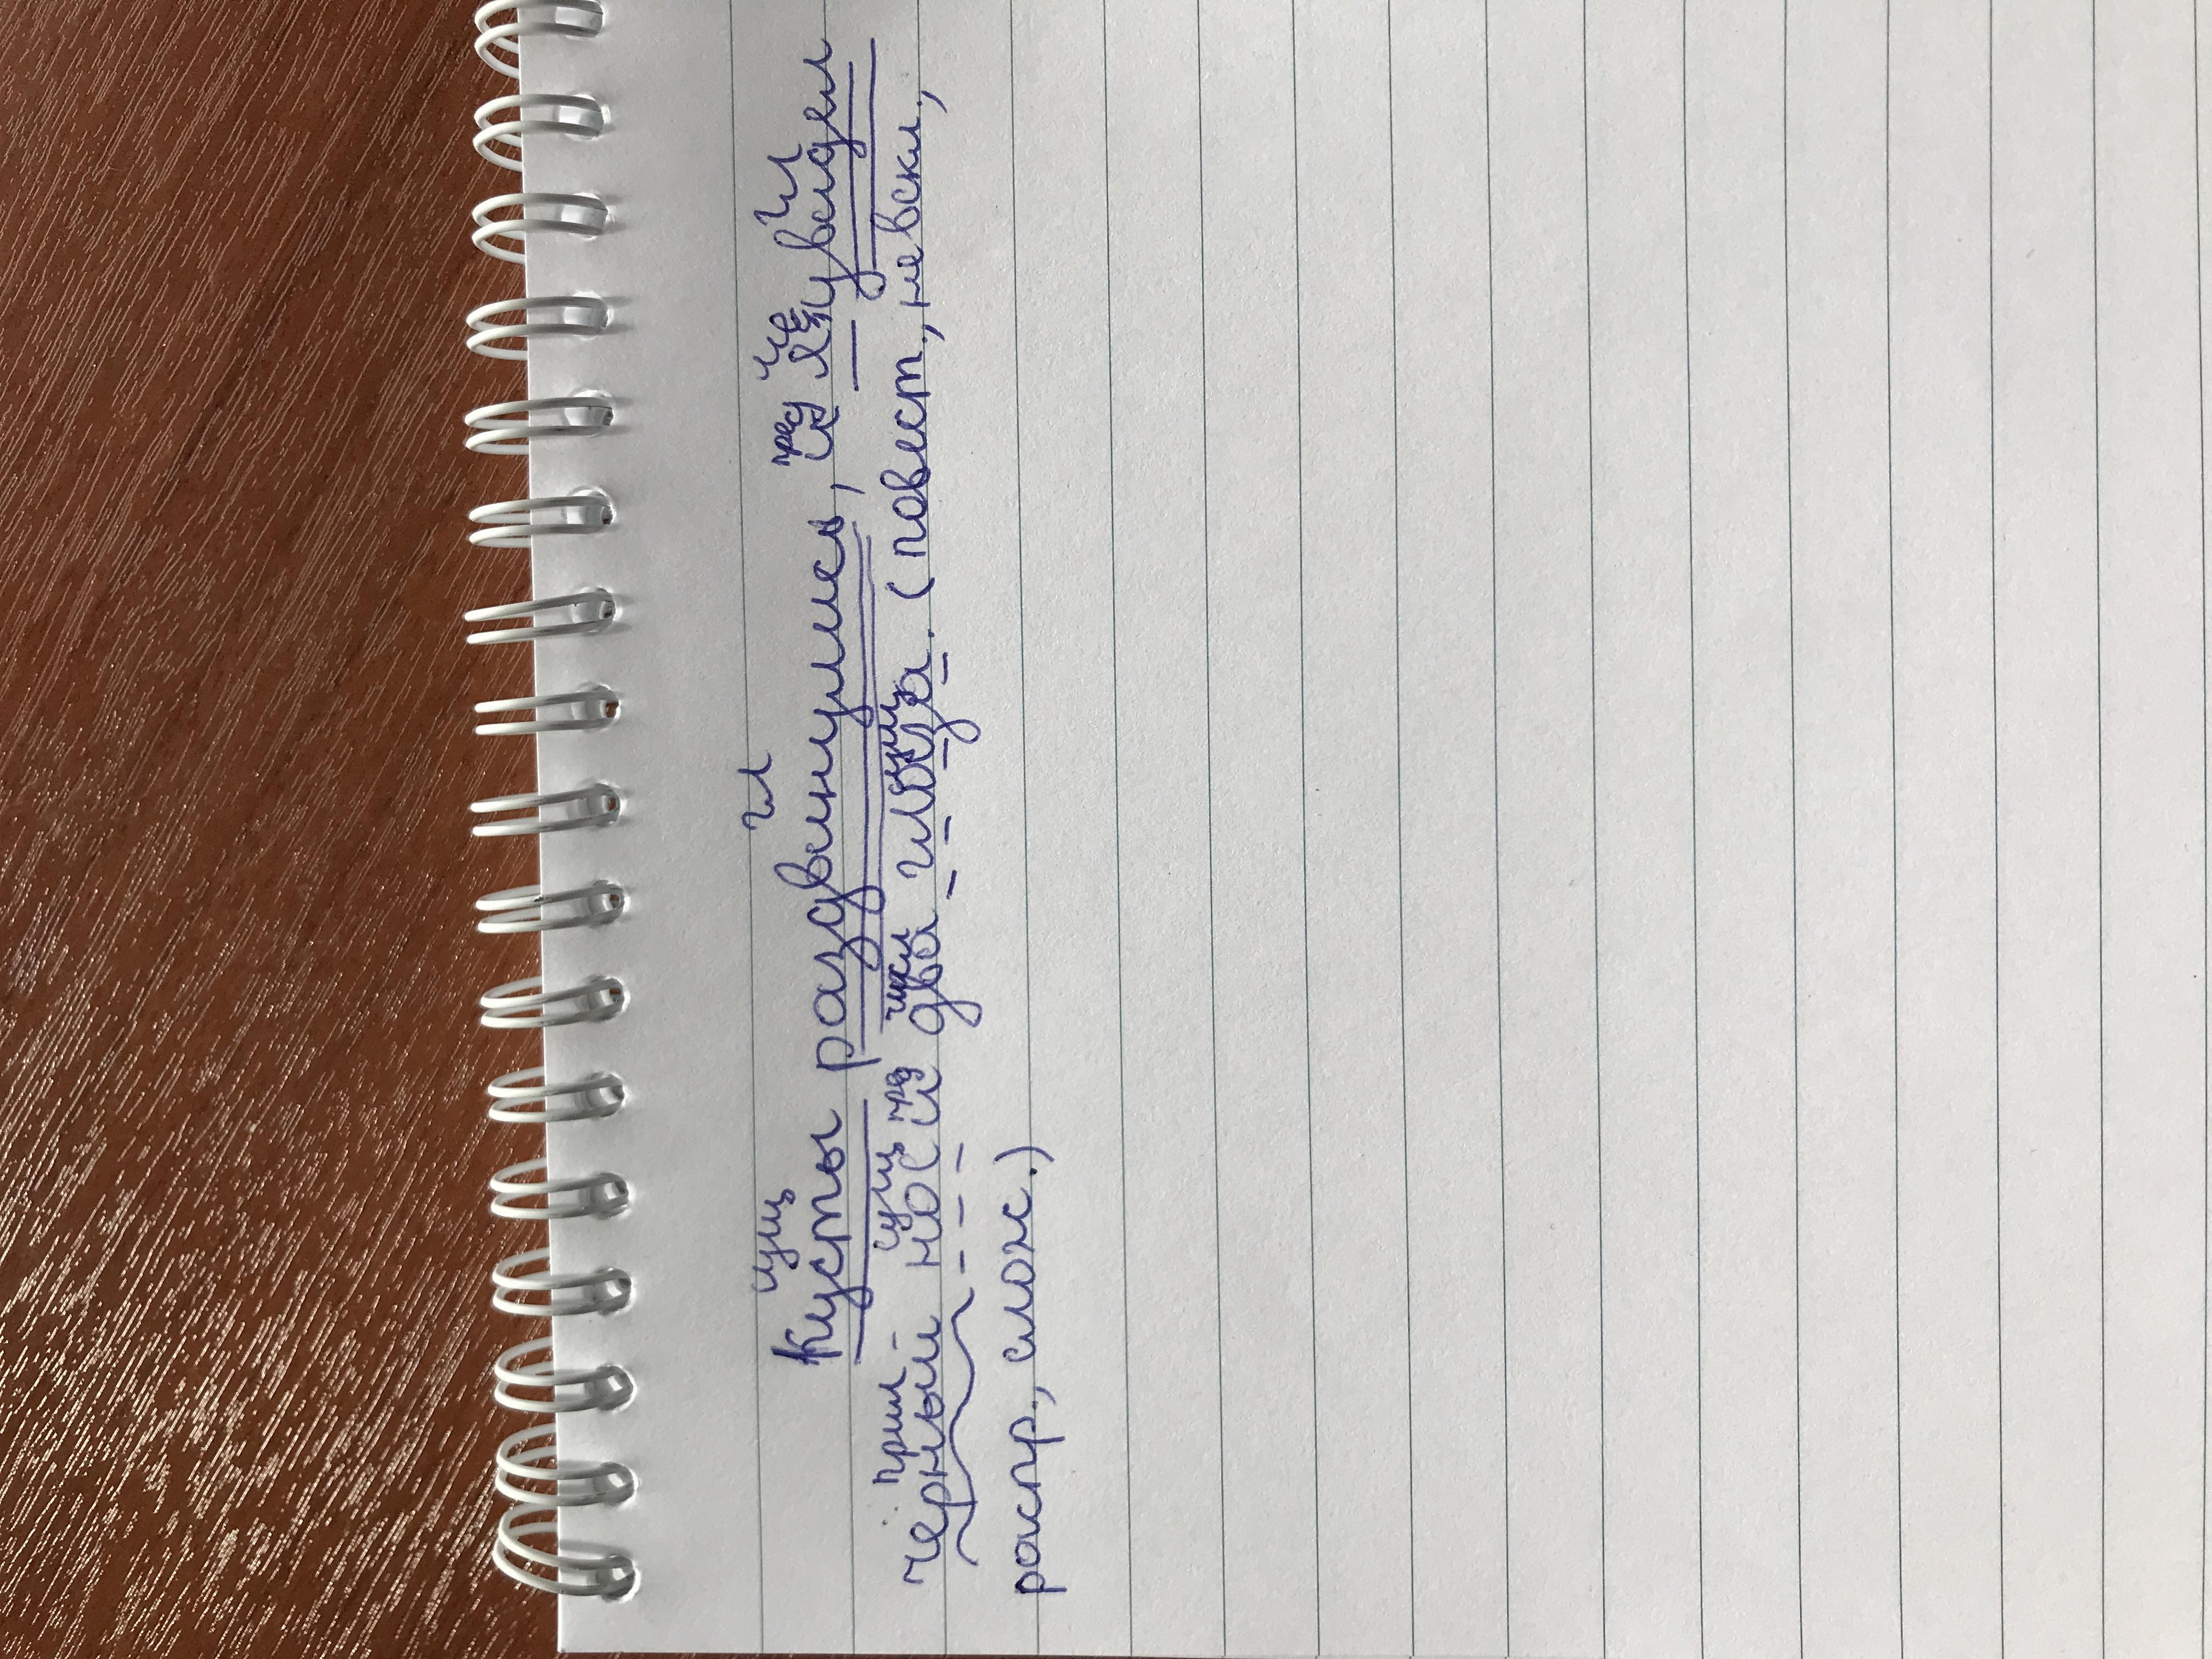 сущ гл пред мест гл
Кусты раздвинулись, и я увидел
прил сущ числ сущ
чёрный нос и два глаза. (повест., невскл.,
распр., слож.)